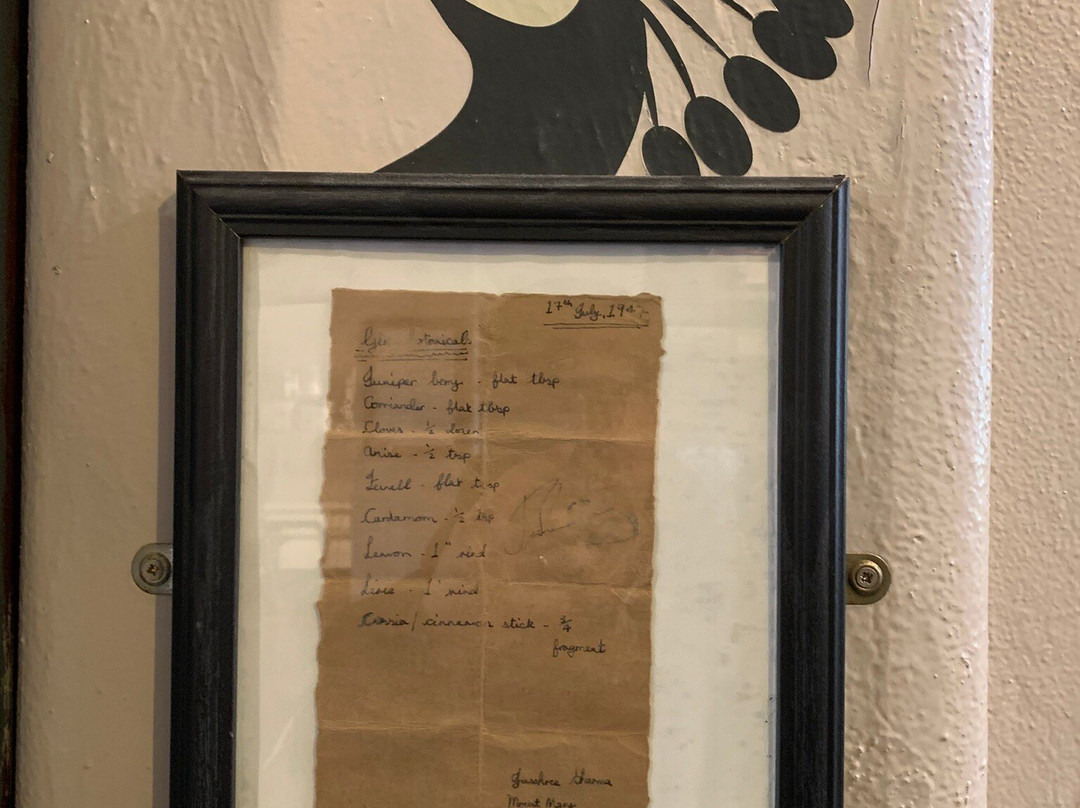 17th July, 19
Gin
Juniper berry - flat tbsp
Corriander - flat tbsp
Cloves - ½ dozen
Anise - ½ tsp
Fennell - flat tbsp
Cardamom - ½ tsp
Lemon - 1" rind
Lime - 1" rind
Cassia / cinnamon stick - ¾
fragment
Sharma
Mount